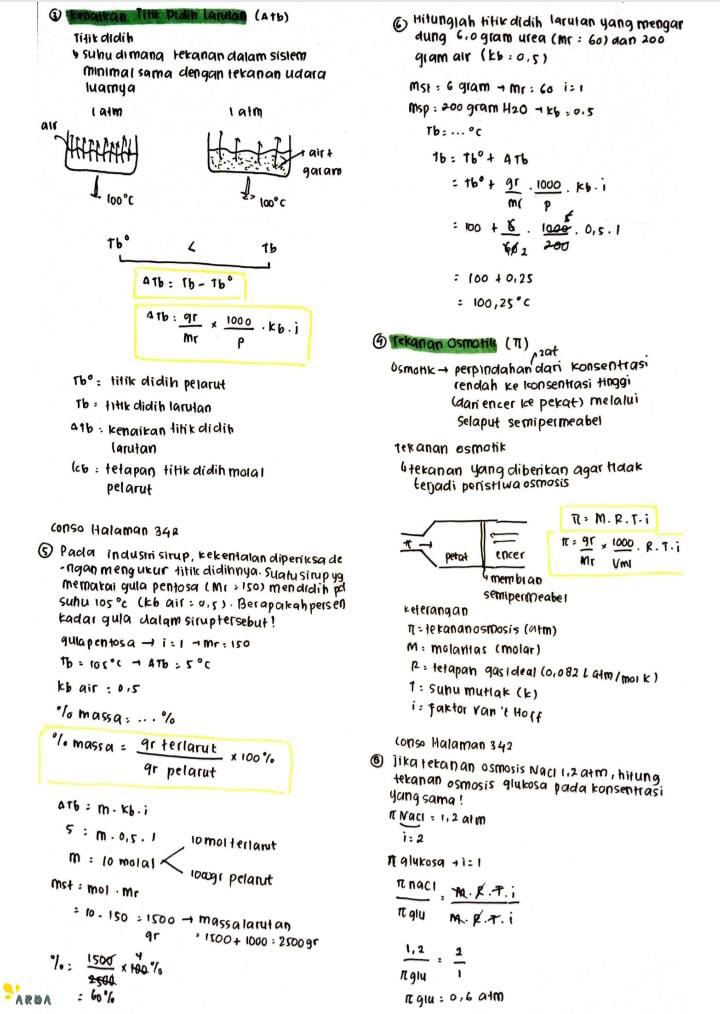 ① Kenaikan Titik Didih Larutan (ΔTb)
Titik didih
↳ suhu dimana tekanan dalam sistem
minimal sama dengan tekanan udara
luarnya
1 atm 1 atm
air
air +
garam
100°C 100°C
Tb° < Tb
ΔTb = Tb - Tb°
ΔTb = gr/mr × 1000/P . Kb . i
Tb° = titik didih pelarut
Tb = titik didih larutan
ΔTb = kenaikan titik didih
larutan
Kb = tetapan titik didih molal
pelarut
Conso Halaman 342
⑤ Pada industri sirup, kekentalan diperiksa de
-ngan mengukur titik didihnya. Suatu sirup yg
memakai gula pentosa (Mr = 150) mendidih pd
suhu 105°C (Kb air = 0,5). Berapakah persen
kadar gula dalam sirup tersebut!
gula pentosa → i = 1 → mr = 150
Tb = 105°C → ΔTb = 5°C
Kb air = 0,5
% massa = ... %
% massa = gr terlarut / gr pelarut × 100%
ΔTb = m . Kb . i
5 = m . 0,5 . 1
m = 10 molal
10 mol terlarut
1000gr pelarut
mst = mol . Mr
= 10 . 150 = 1500 gr → massa larutan
= 1500 + 1000 = 2500 gr
% = 1500/2500 × 100 4 %
= 60%
ARDA
⑥ Hitunglah titik didih larutan yang mengan
dung 6,0 gram urea (mr = 60) dan 200
gram air (kb = 0,5)
mst = 6 gram → mr = 60 i = 1
msp = 200 gram H2O → Kb = 0.5
Tb = ... °C
Tb = Tb° + ΔTb
= Tb° + gr/mr . 1000/P . Kb . i
= 100 + 6/60 2 . 1000 5/200 . 0,5 . 1
= 100 + 0,25
= 100,25°C
④ Tekanan Osmotik (π)
zat
Osmotik → perpindahan dari konsentrasi
rendah ke konsentrasi tinggi
(dari encer ke pekat) melalui
Selaput semipermeabel
Tekanan osmotik
↳ tekanan yang diberikan agar tidak
terjadi peristiwa osmosis
π →
pekat encer
membran
semipermeabel
π = M . R . T . i
π = gr/Mr × 1000/Vml . R . T . i
Keterangan
π = tekanan osmosis (atm)
M = molaritas (molar)
R = tetapan gas ideal (0,082 L atm/mol K)
T = suhu mutlak (k)
i = faktor Van't Hoff
Conso Halaman 342
⑧ Jika tekanan osmosis NaCl 1,2 atm, hitung
tekanan osmosis glukosa pada konsentrasi
yang sama!
π NaCl = 1,2 atm
i = 2
π glukosa → i = 1
π nacl / π glu = M . R . T . i / M . R . T . i
1,2 / π glu = 2/1
π glu = 0,6 atm